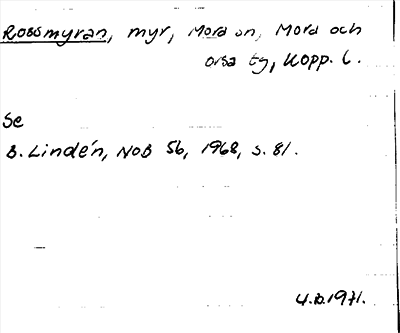 Rossmyran, myr, Mora sn, Mora och
Orsa tg, Kopp. l.
Se
B. Lindén, NoB 56, 1968, s. 81.
1971.